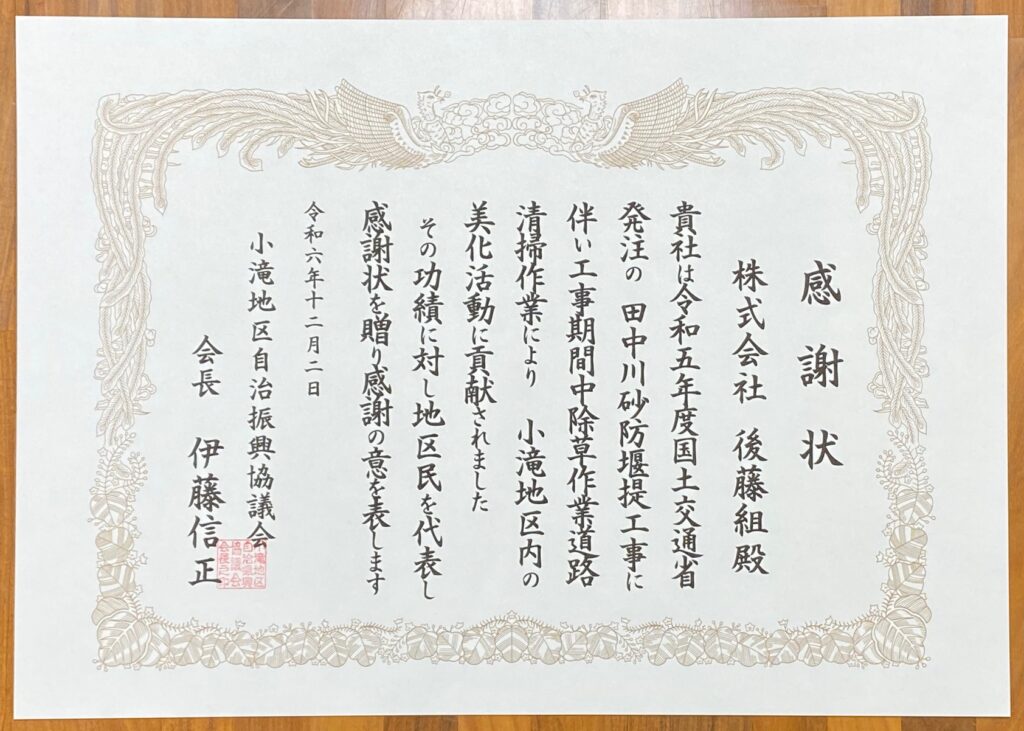 感謝状
株式会社 後藤組殿
貴社は令和五年度国土交通省
発注の 田中川砂防堰堤工事に
伴い工事期間中除草作業道路
清掃作業により 小滝地区内の
美化活動に貢献されました
その功績に対し地区民を代表し
感謝状を贈り感謝の意を表します
令和六年十二月二日
小滝地区自治振興協議会
会長 伊藤信正
小滝地区
自治振興
協議会
会長之印